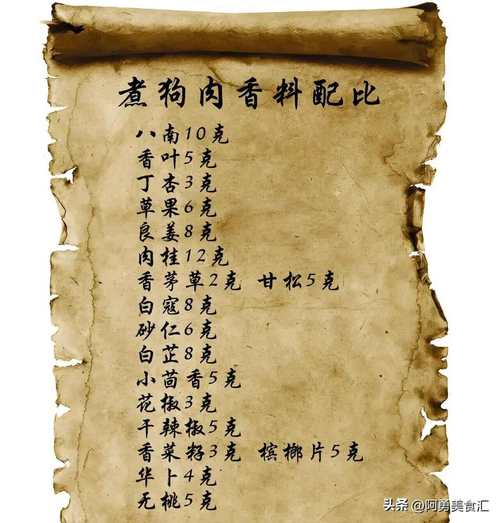 煮狗肉香料配比
八南10克
香叶5克
丁杏3克
草果6克
良姜8克
肉桂12克
香茅草2克 甘松5克
白寇8克
砂仁6克
白芷8克
小茴香5克
花椒3克
干辣椒5克
香菜籽3克 槟榔片5克
华卜4克
无桃5克
头条 @阿勇美食汇